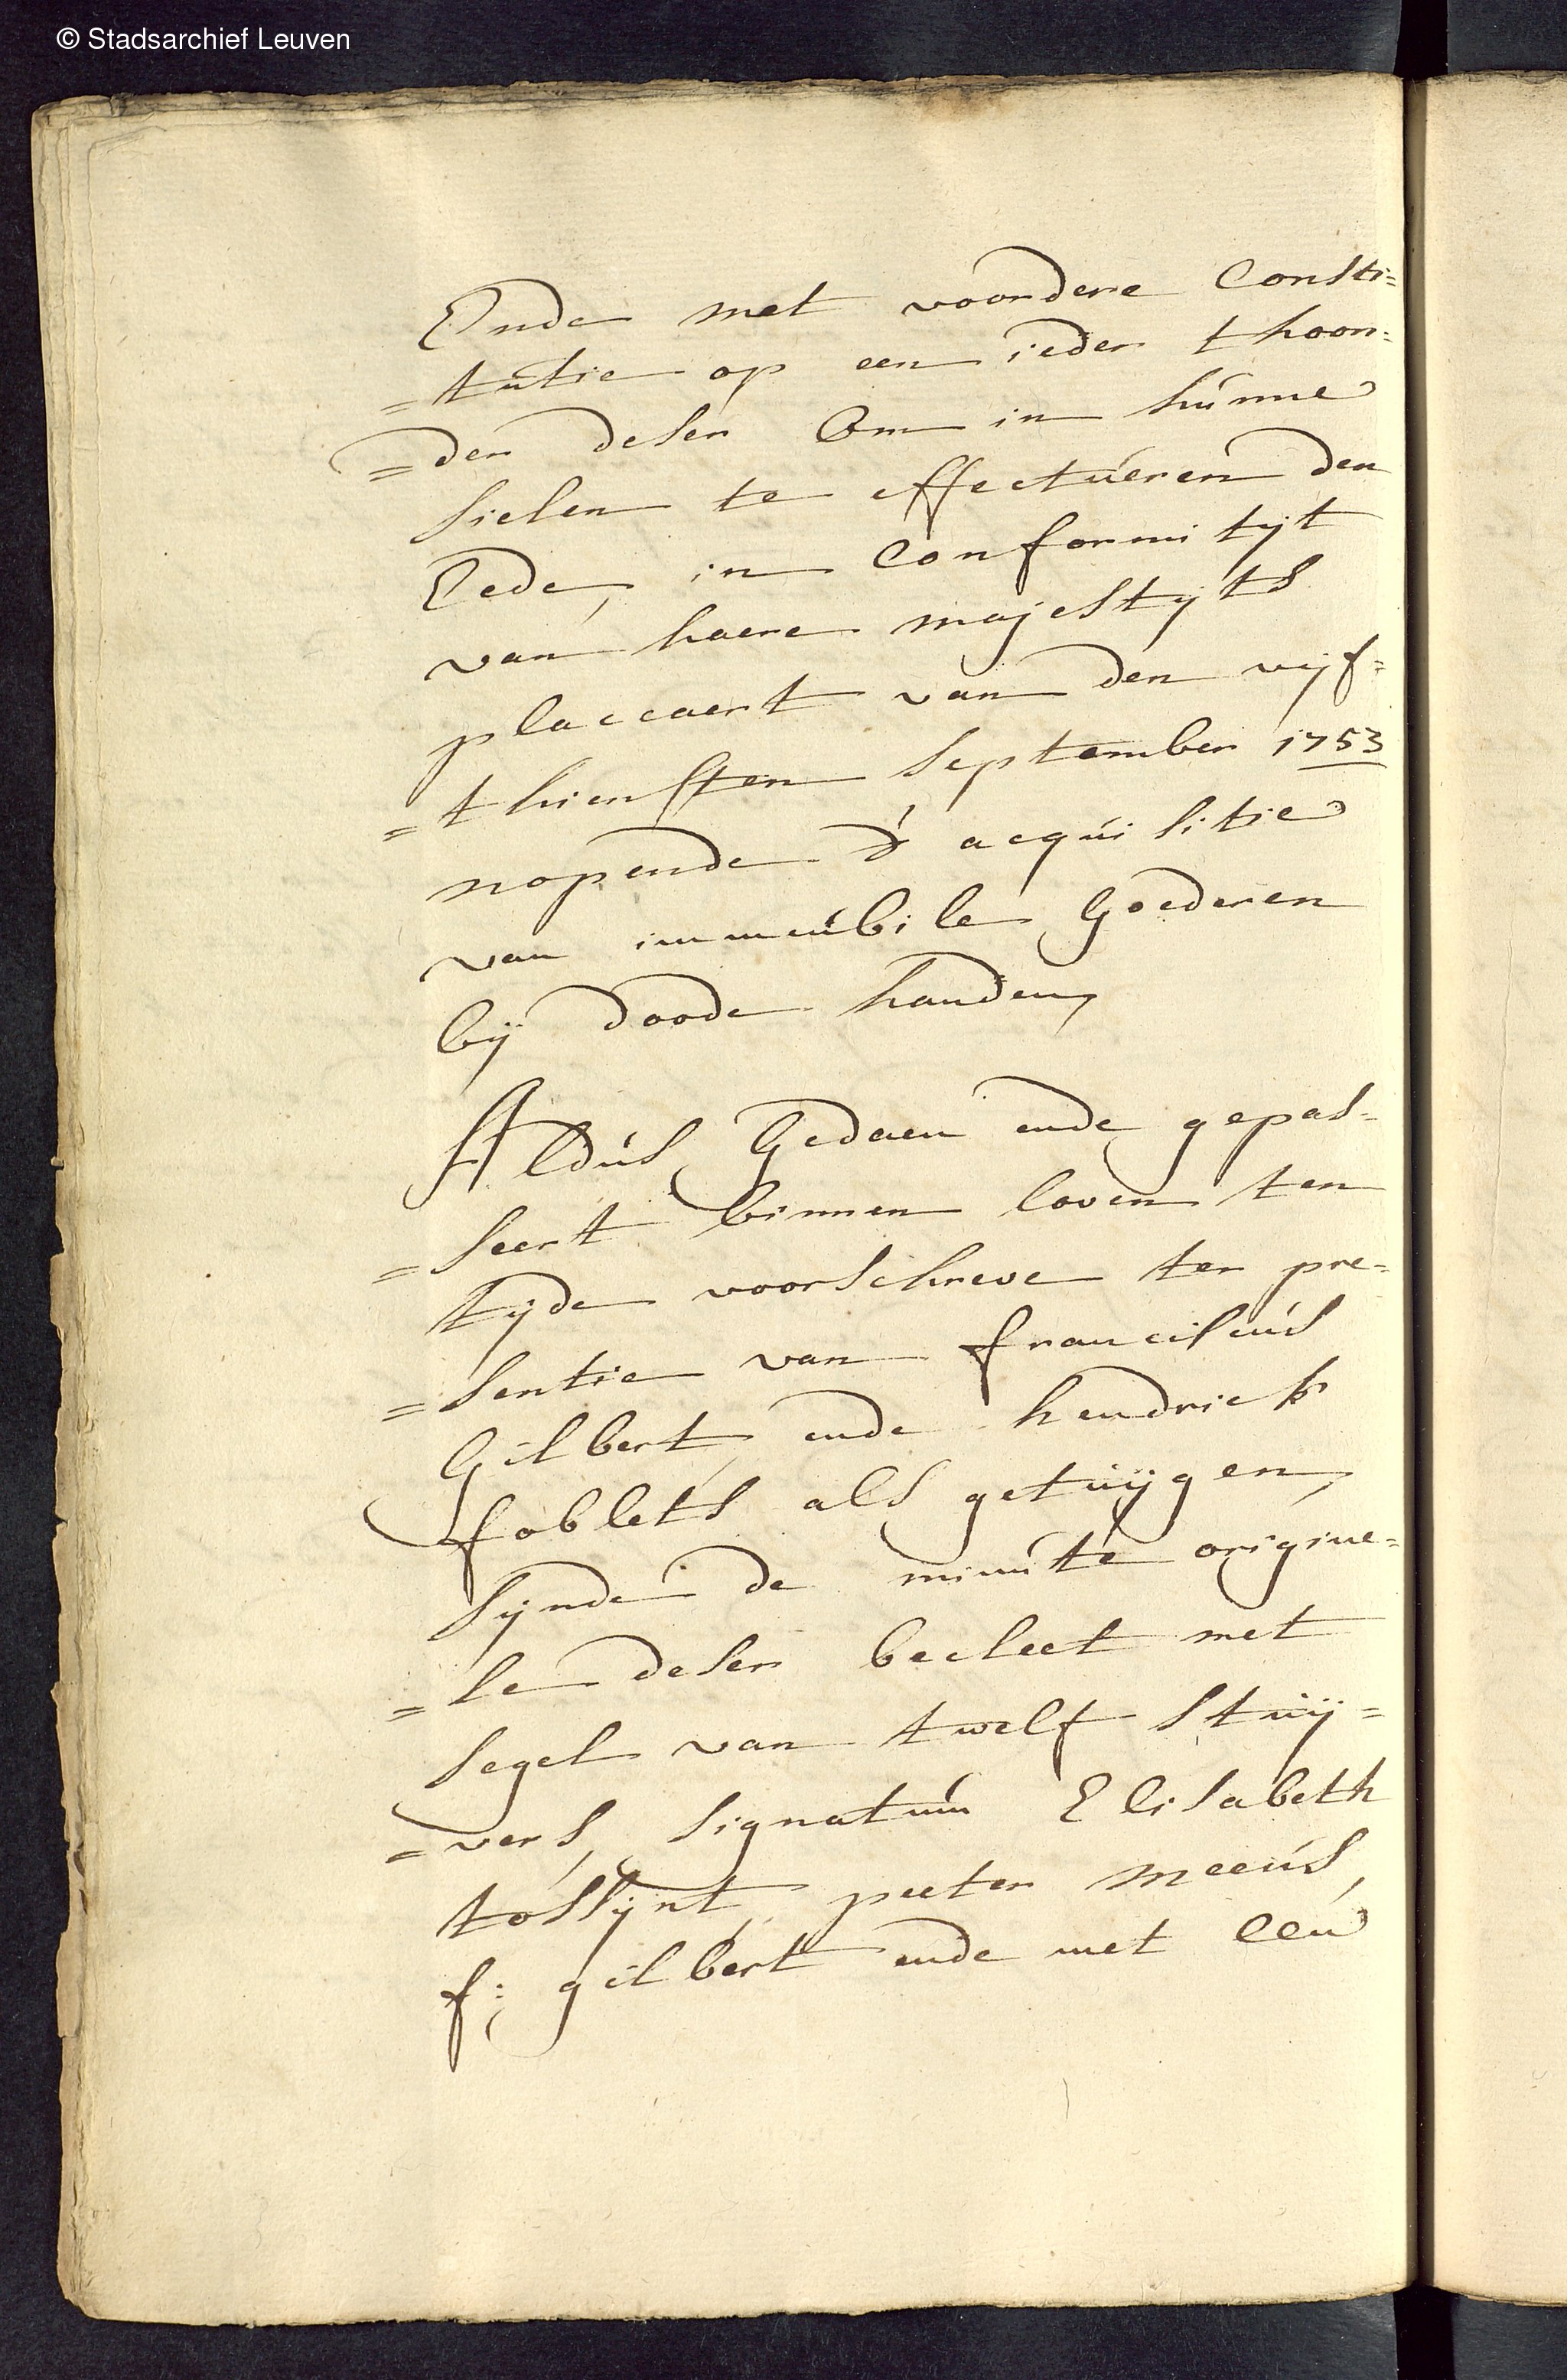 © Stadsarchief Leuven
Ende met voordere Consti=
=tutie op een ieder thoon=
=der deser Om in hunne
sielen te effectueren den
Eede, in Conformityt
van haere majestyts
placcaert van den vyf=
=thiensten September 1753
nopende d' acquisitie
van immeubile Goederen
bÿ doode handen,
Aldus Gedaen ende gepas=
=seert binnen loven ten
tÿde voorschreve ter pre=
=sentie van franciscus
Gilbert, ende hendrick
foblets als getuÿgen,
sÿnde de minute origine=
=le deser becleet met
segel van twelf stuÿ=
=vers, signatum Elisabeth
tossÿnt, peeter meeus,
f: gilbert ende met een